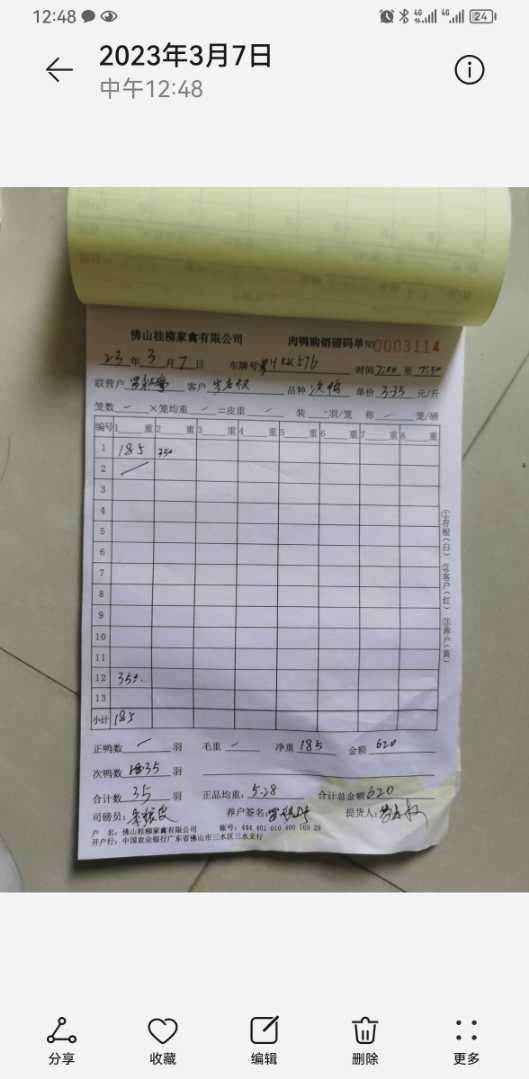 12:48
4G 4G 24
2023年3月7日
中午12:48
佛山桂柳家禽有限公司 肉鸭购销磅码单 №0003114
23 年 3 月 7 日 车牌号 时间 7:00 至 7:30
联营户 客户 品种 次鸭 单价 3.35 元/斤
笼数 ×笼均重 =皮重 装 羽/笼 称 笼/磅
编号 1 重 2 重 3 重 4 重 5 重 6 重 7 重 8 重
1 185 350
2
3
4
5
6
7
8
9
10
11
12 350
13
小计 185
①存根(白) ②客户(红) ③养户(黄)
正鸭数 羽 毛重 净重 185 金额 620
次鸭数 35 羽
合计数 35 羽 正品均重: 5.28 合计总金额 620
司磅员: 养户签名: 提货人:
户 名: 佛山桂柳家禽有限公司 账号:
开户行: 中国农业银行广东省佛山市三水区三水支行
分享 收藏 编辑 删除 更多